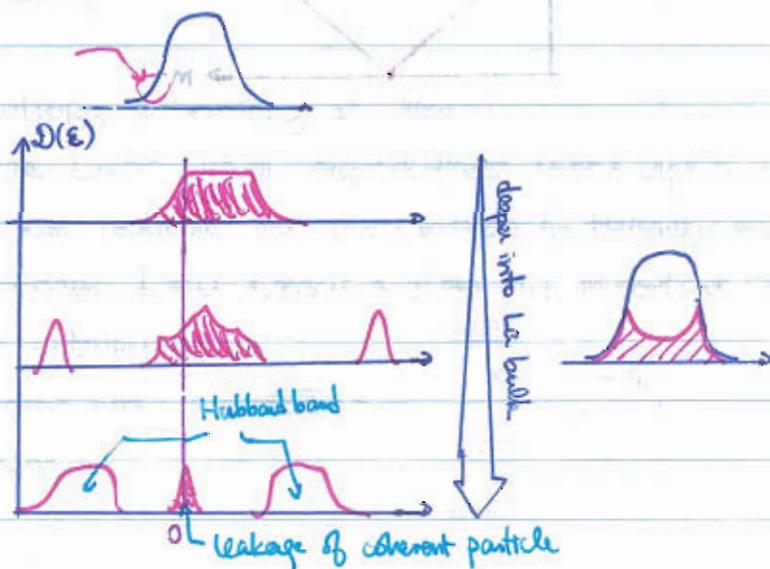 n
D(ε)
deeper into La bulk
Hubbard band
0
leakage of coherent particle